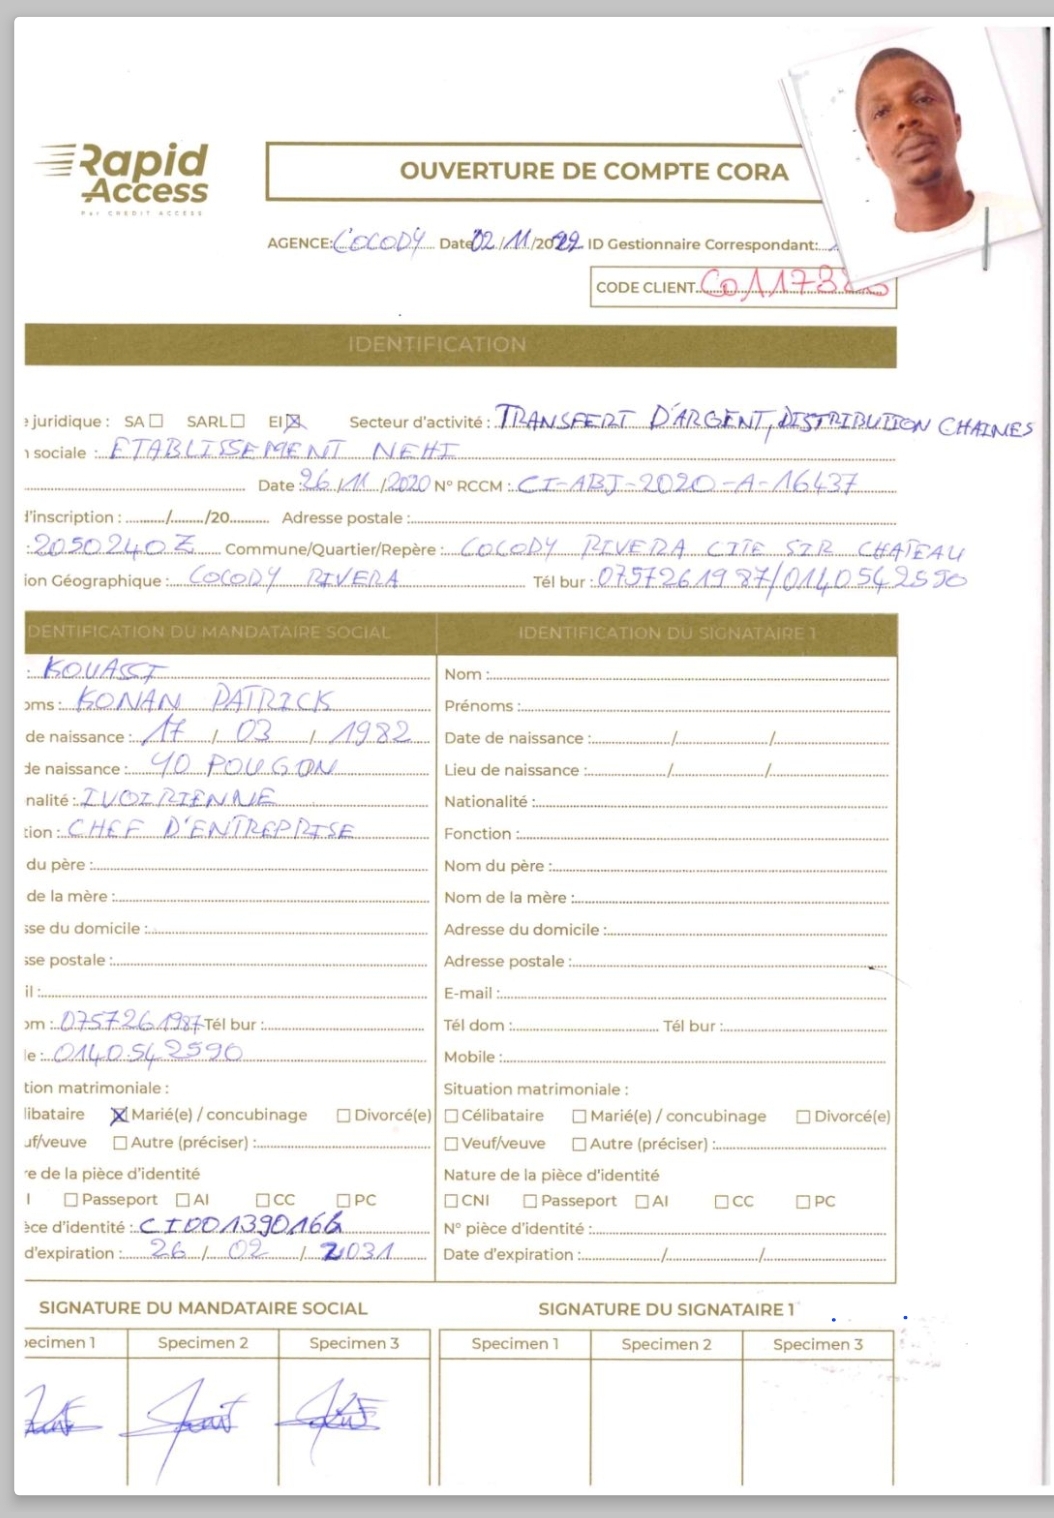 Rapid
Access
PAR CREDIT ACCESS
OUVERTURE DE COMPTE CORA
AGENCE: COCODY Date 02/11/2022 ID Gestionnaire Correspondant:
CODE CLIENT
IDENTIFICATION
juridique : SA ☐ SARL ☐ EI ☒ Secteur d'activité : TRANSFERT D'ARGENT, DISTRIBUTION CHAINES
sociale : ETABLISSEMENT NEHI
Date : 26/11/2020 N° RCCM : CI-ABJ-2020-A-16437
d'inscription : ......./....../20......... Adresse postale :
: 2050240Z Commune/Quartier/Repère : COCODY RIVERA CITE SIR CHATEAU
ion Géographique : COCODY RIVERA Tél bur : 0757261987/0140542590
DENTIFICATION DU MANDATAIRE SOCIAL IDENTIFICATION DU SIGNATAIRE 1
: KOUASSI
oms : KONAN PATRICK
de naissance : 17 / 03 / 1982
de naissance : YOPOUGON
nalité : IVOIRIENNE
tion : CHEF D'ENTREPRISE
du père :
de la mère :
sse du domicile :
sse postale :
il :
om : 0757261987 Tél bur :
le : 0140542590
tion matrimoniale :
libataire ☒ Marié(e) / concubinage ☐ Divorcé(e)
uf/veuve ☐ Autre (préciser) :
re de la pièce d'identité
I ☐ Passeport ☐ AI ☐ CC ☐ PC
èce d'identité : CI001390166
d'expiration : 26 / 02 / 2031
Nom :
Prénoms :
Date de naissance : / /
Lieu de naissance : / /
Nationalité :
Fonction :
Nom du père :
Nom de la mère :
Adresse du domicile :
Adresse postale :
E-mail :
Tél dom : Tél bur :
Mobile :
Situation matrimoniale :
☐ Célibataire ☐ Marié(e) / concubinage ☐ Divorcé(e)
☐ Veuf/veuve ☐ Autre (préciser) :
Nature de la pièce d'identité
☐ CNI ☐ Passeport ☐ AI ☐ CC ☐ PC
N° pièce d'identité :
Date d'expiration : / /
SIGNATURE DU MANDATAIRE SOCIAL SIGNATURE DU SIGNATAIRE 1
pecimen 1 Specimen 2 Specimen 3 Specimen 1 Specimen 2 Specimen 3